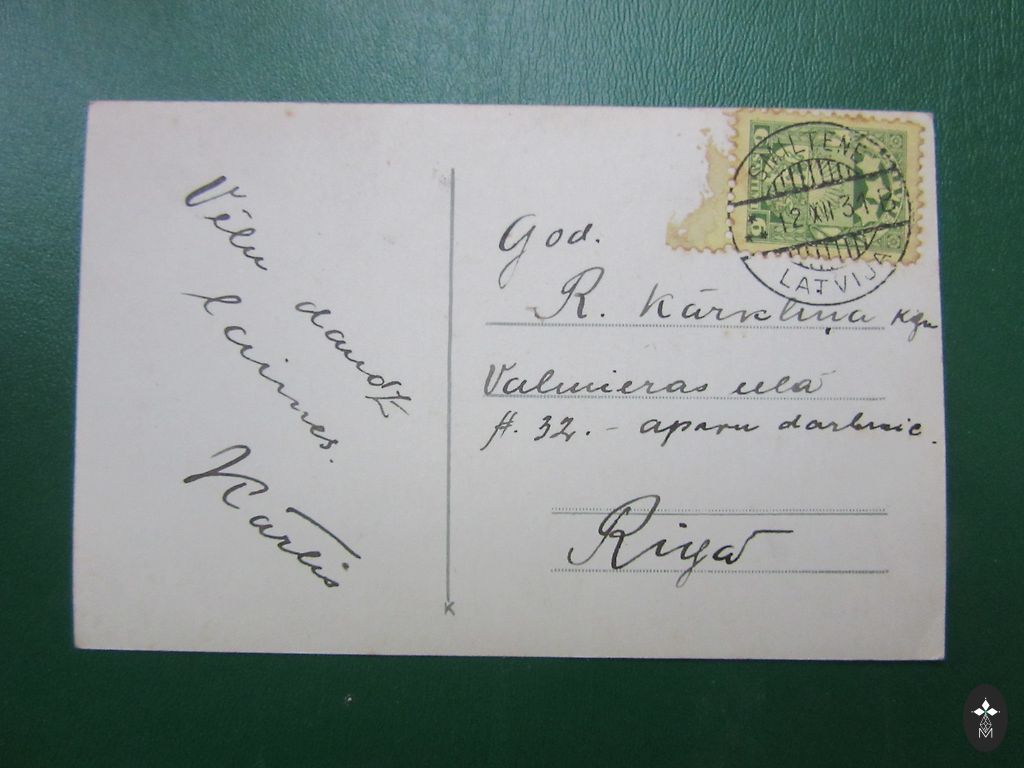 Vēlu
daudz
laimes.
Kārlis
God.
R. Kārkliņa kgu
Valmieras ielā
32. - apavu darbnīc.
Rigā
SMILTENE
12 XII 31
LATVIJA
K
M